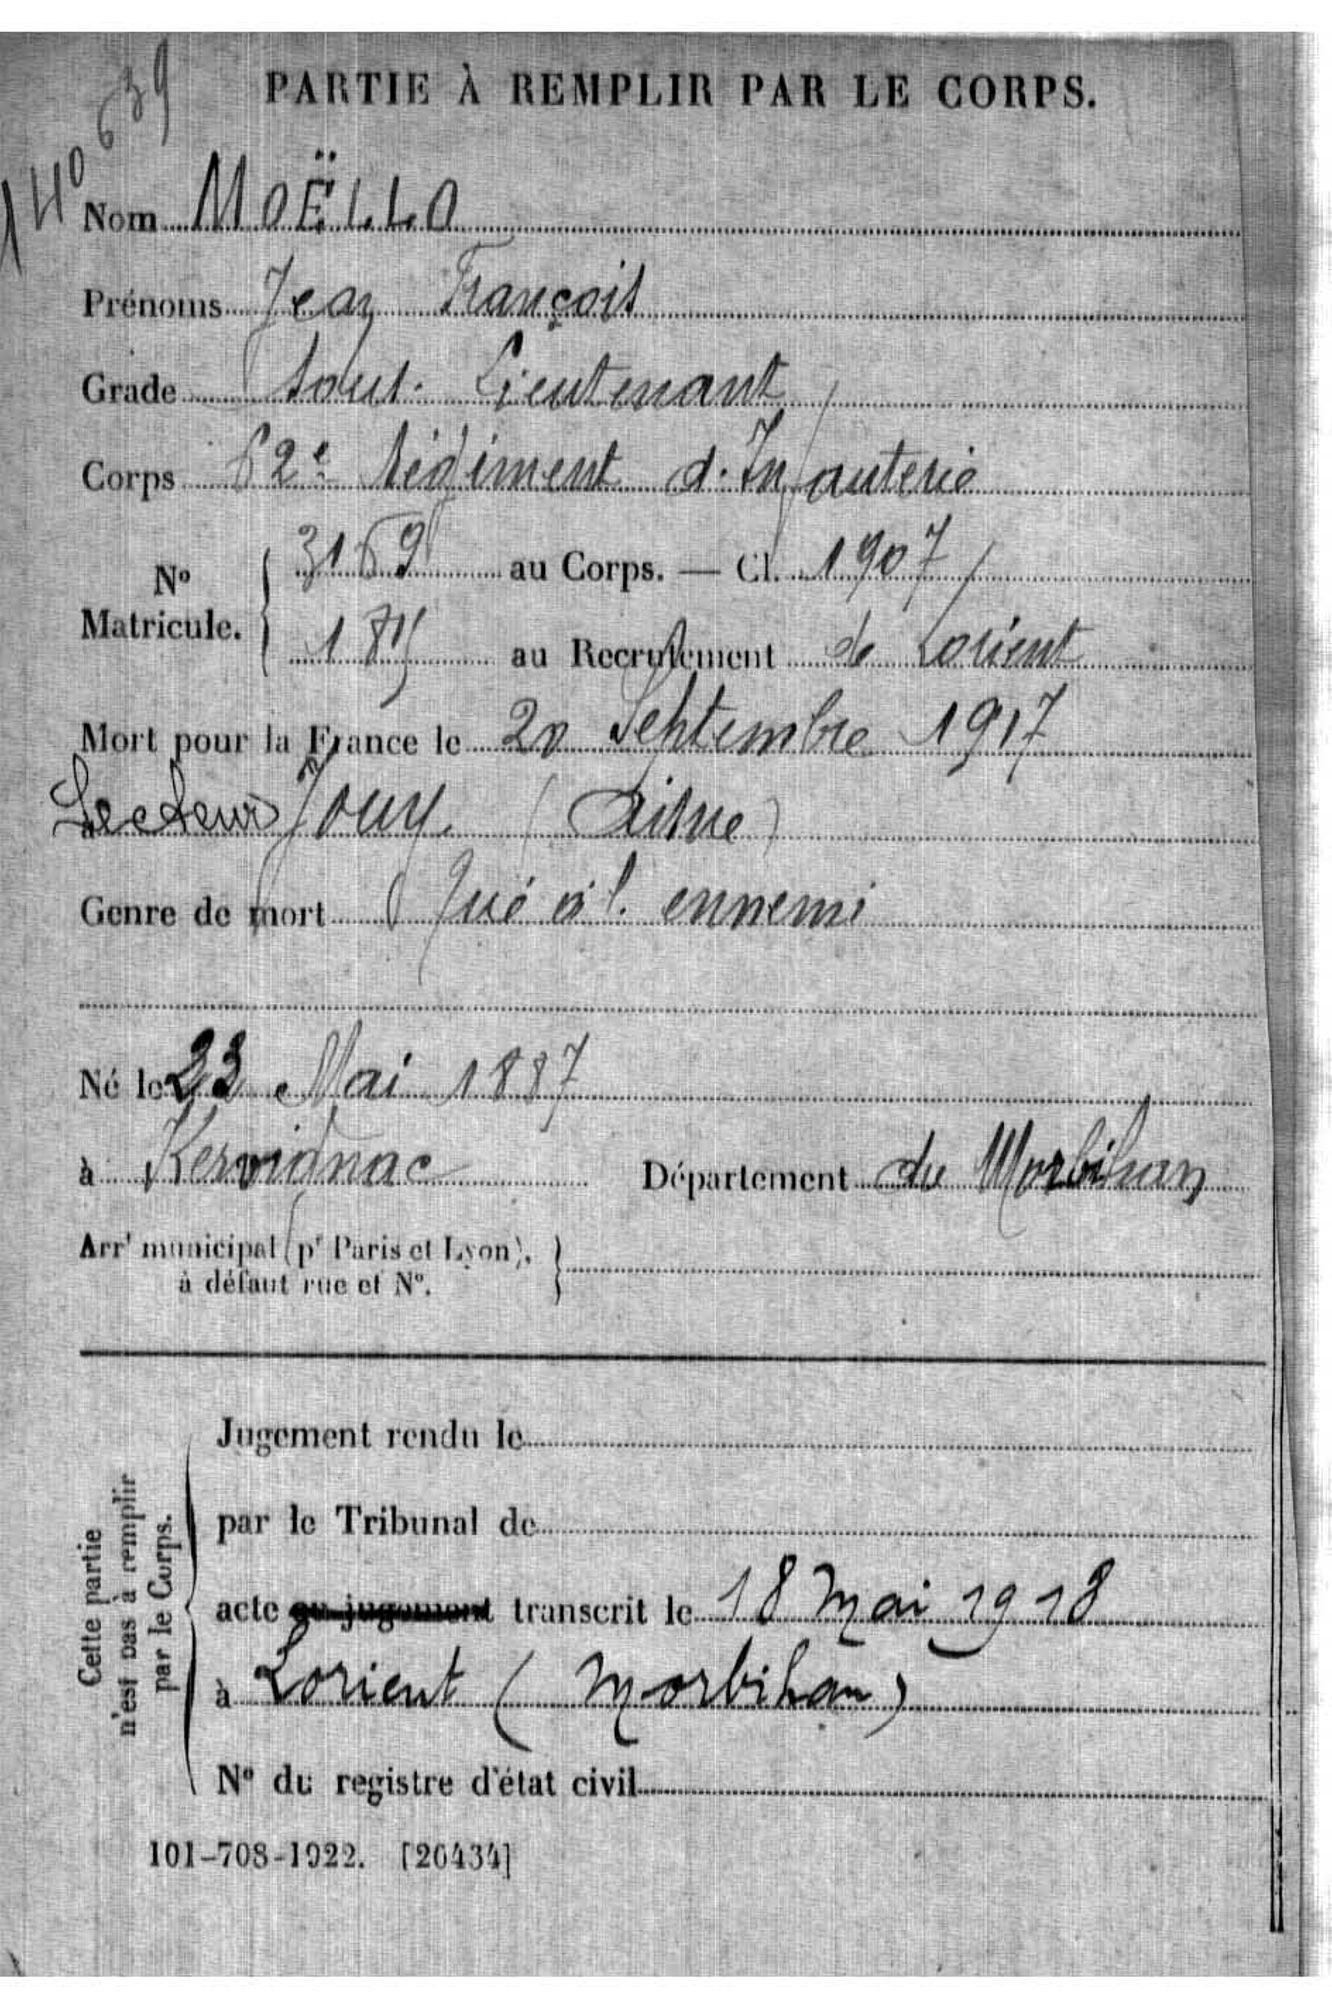 140639
PARTIE À REMPLIR PAR LE CORPS.
Nom MOËLLO
Prénoms Jean François
Grade Sous-Lieutenant
Corps 62e Régiment d'Infanterie
No Matricule. 3169 au Corps. — Cl. 1907
au Recrutement de Lorient
Mort pour la France le 20 Septembre 1917
Secteur Jouy (Aisne)
Genre de mort Tué à l'ennemi
Né le 23 Mai 1887
à Kervignac Département du Morbihan
Arrt municipal (pr Paris et Lyon),
à défaut rue et No.
Cette partie
n'est pas à remplir
par le Corps.
Jugement rendu le
par le Tribunal de
acte ou jugement transcrit le 18 Mai 1918
à Lorient (Morbihan)
No du registre d'état civil
101-708-1922. [26434]